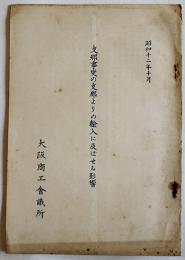 昭和十二年十月
支那事變の支那よりの輸入に及ぼせる影響
大阪商工會議所